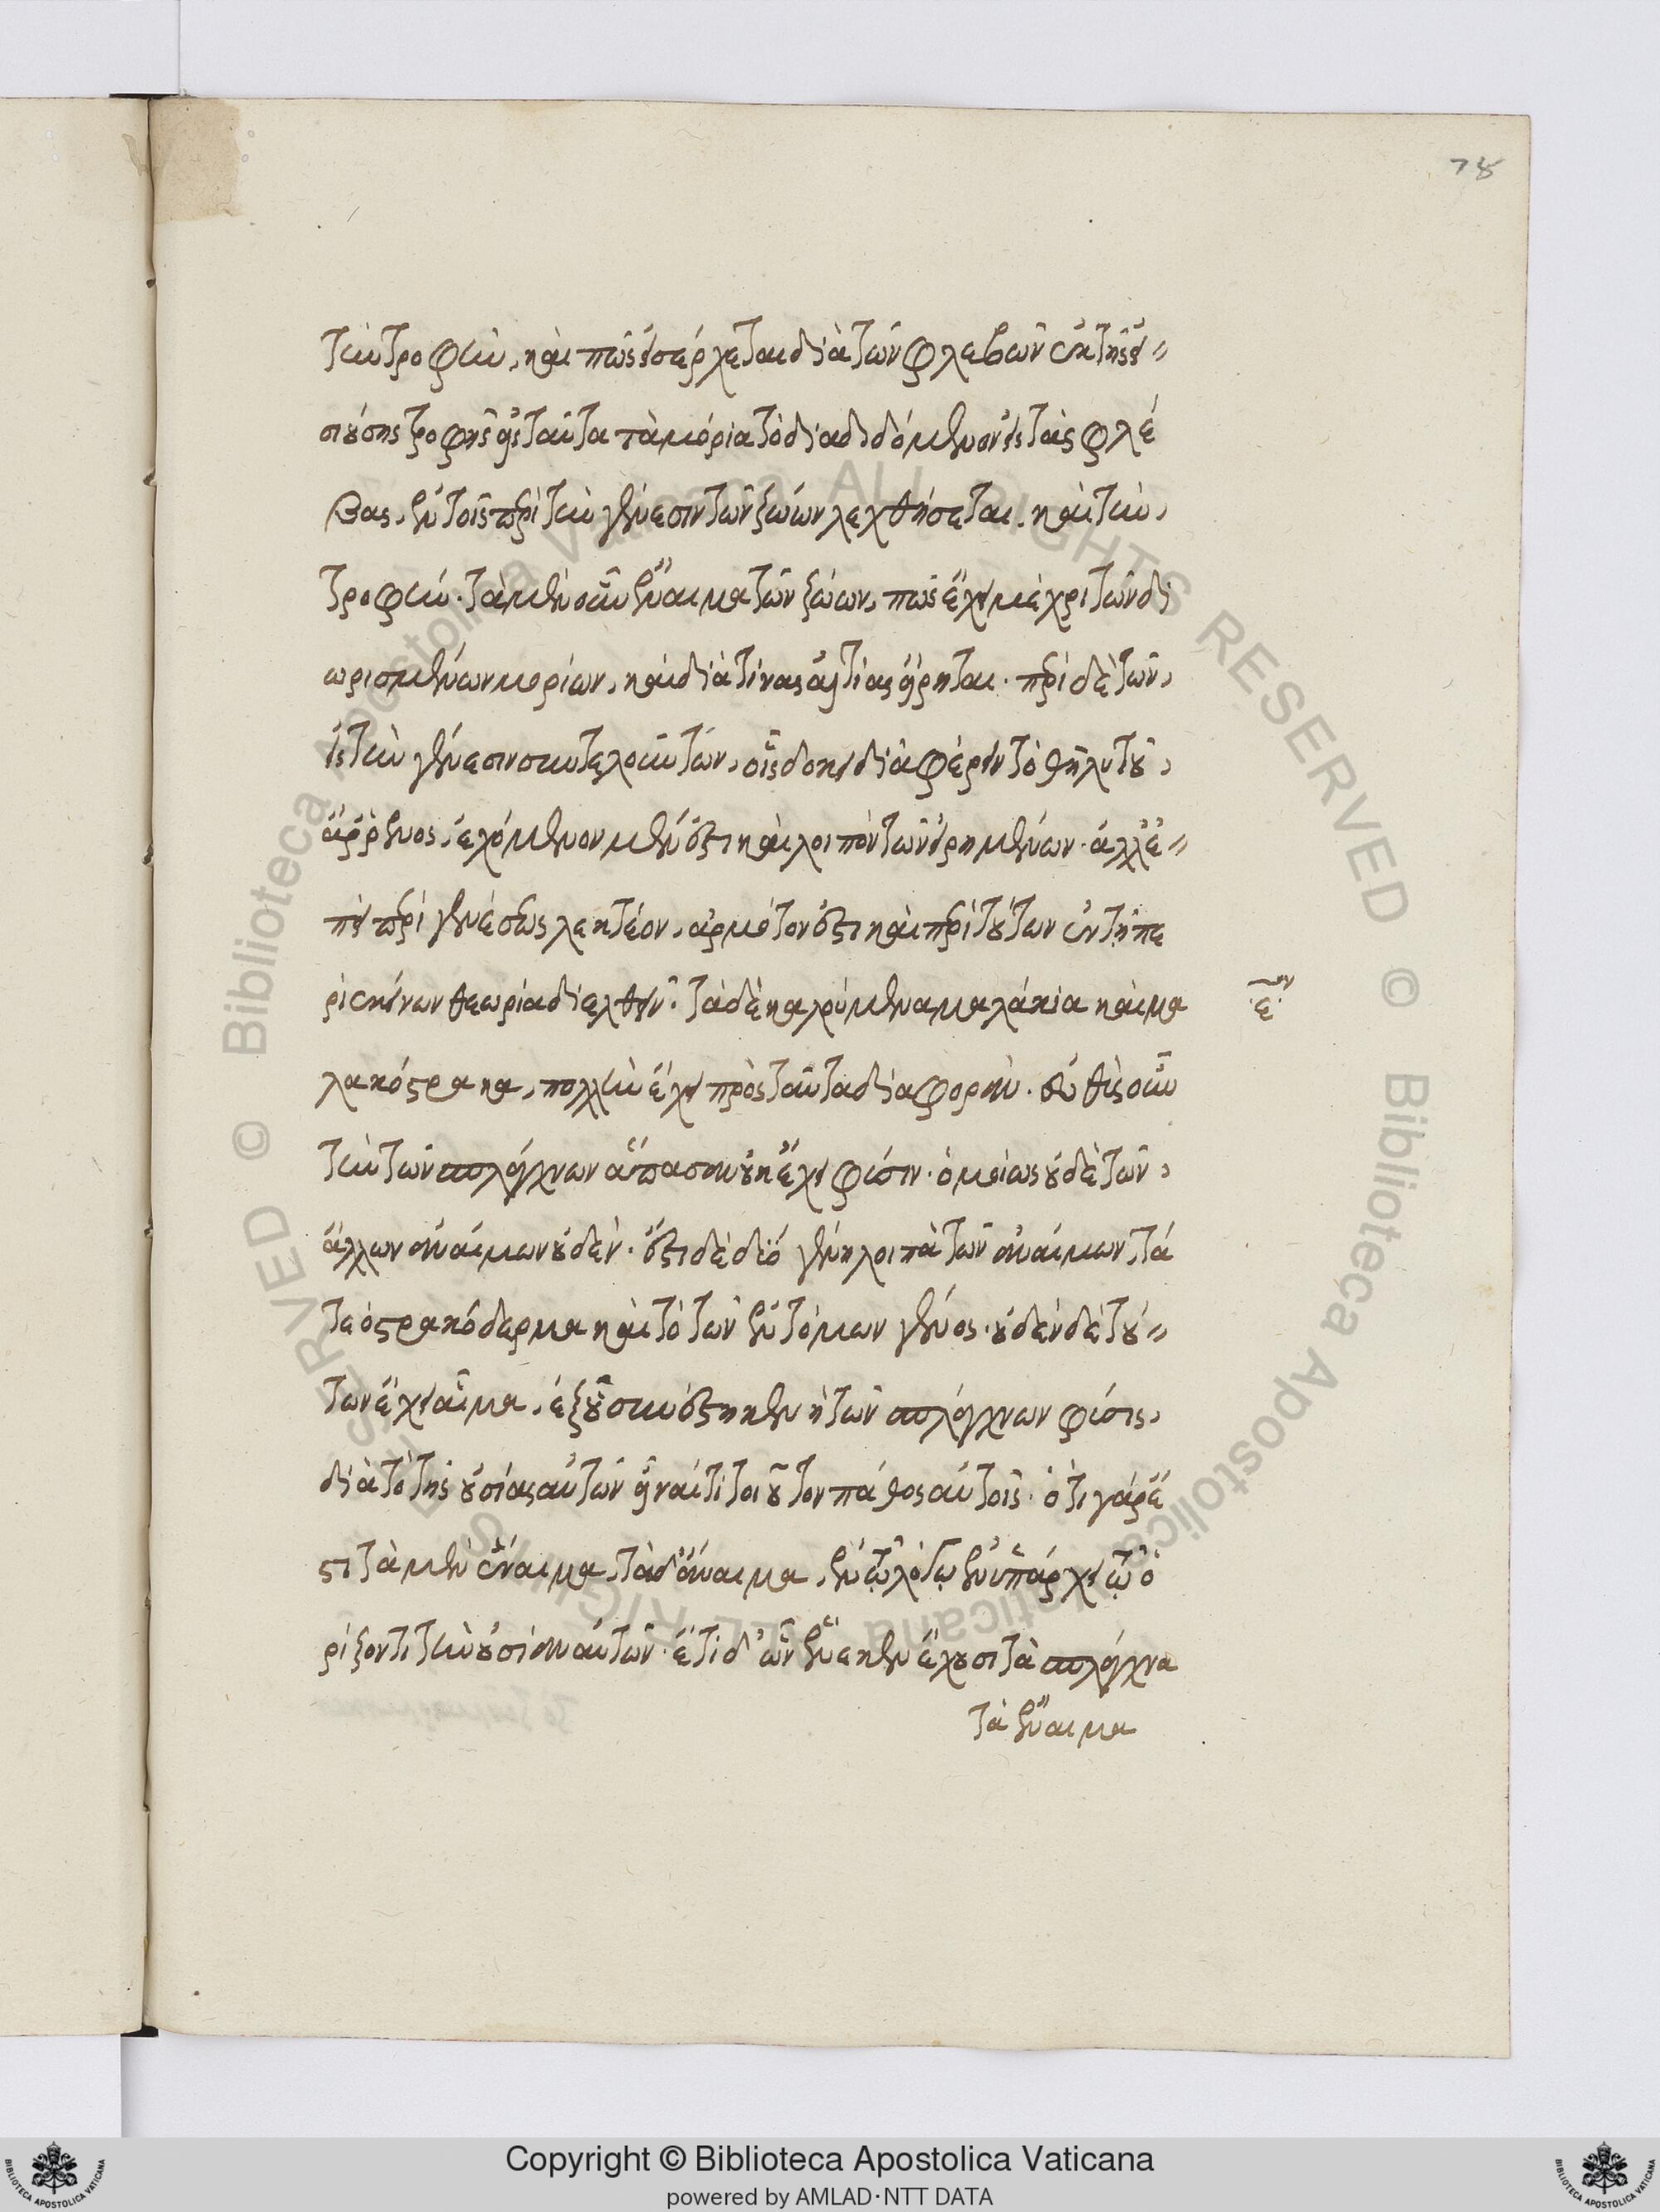 78
τὴν τροφὴν, καὶ πῶς εἰσέρχεται διὰ τῶν φλεβῶν ἐκ τῆς εἰ〃
σιούσης τροφῆς εἰς ταῦτα τὰ μόρια τὸ διαδιδόμενον εἰς τὰς φλέ
βας, ἐν τοῖς περὶ τὴν γένεσιν τῶν ζώων λεχθήσεται, καὶ τὴν,
τροφήν. τὰ μὲν οὖν ἔναιμα τῶν ζώων, πῶς ἔχει μέχρι τῶν δι
ωρισμένων μορίων, καὶ διὰ τίνας αἰτίας εἴρηται. περὶ δὲ τῶν,
εἰς τὴν γένεσιν συντελούντων, οἷς δοκεῖ διαφέρειν τὸ θῆλυ τοῦ,
ἄρρενος, ἐχόμενον μέν ἐστι καὶ λοιπὸν τῶν εἰρημένων. ἀλλ' ἐ〃
πεὶ περὶ γενέσεως λεκτέον, ἁρμόττον ἐστὶ καὶ περὶ τούτων ἐν τῇ πε
ρὶ ἐκείνων θεωρίᾳ διελθεῖν. τὰ δὲ καλούμενα μαλάκια καὶ μα
ε.ον
λακόστρακα, πολλὴν ἔχει πρὸς ταῦτα διαφοράν. εὐθὺς οὖν
τὴν τῶν σπλάγχνων ἅπασαν οὐκ ἔχει φύσιν. ὁμοίως οὐδὲ τῶν,
ἄλλων ἀναίμων οὐδέν. ἔστι δὲ δύο γένη λοιπὰ τῶν ἀναίμων, τά
τε ὀστρακόδερμα καὶ τὸ τῶν ἐντόμων γένος. οὐδὲν δὲ τού〃
των ἔχει αἷμα, ἐξ οὗ συνέστηκεν ἡ τῶν σπλάγχνων φύσις,
διὰ τὸ τῆς οὐσίας αὐτῶν εἶναί τι τοιοῦτον πάθος αὐτοῖς. ὅτι γάρ ἐ
στι τὰ μὲν ἔναιμα, τὰ δ' ἄναιμα, ἐν τῷ λόγῳ ἐνυπάρχει τῷ ὁ
ρίζοντι τὴν οὐσίαν αὐτῶν. ἔτι δ' ὧν ἕνεκεν ἔχουσι τὰ σπλάγχνα
τὰ ἔναιμα
Copyright © Biblioteca Apostolica Vaticana
powered by AMLAD·NTT DATA